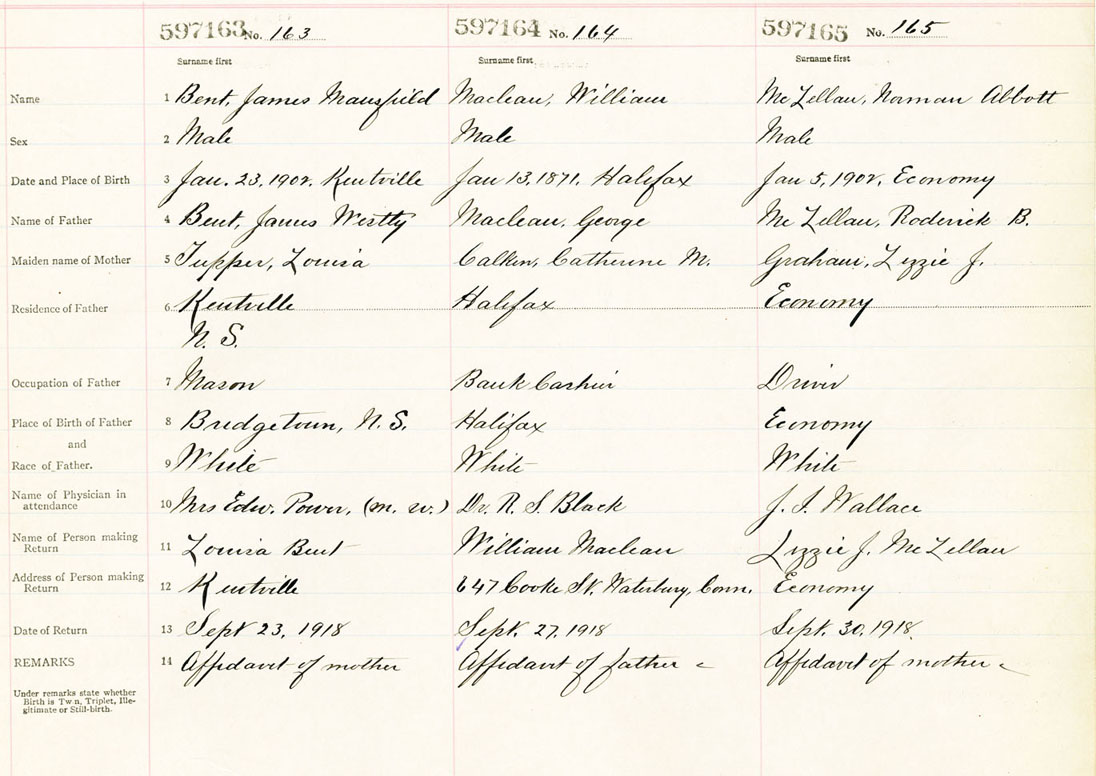 597163 No. 163 597164 No. 164 597165 No. 165
Surname first Surname first Surname first
Name 1 Bent, James Mansfield Maclean, William McLellan, Norman Abbott
Sex 2 Male Male Male
Date and Place of Birth 3 Jan. 23, 1902, Kentville Jan 13, 1871, Halifax Jan 5, 1902, Economy
Name of Father 4 Bent, James Maclean, George McLellan, Roderick B.
Maiden name of Mother 5 Tupper, Louisa Calkin, Catherine M. Graham, Lizzie J.
Residence of Father 6 Kentville Halifax Economy
N. S.
Occupation of Father 7 Mason Bank Cashier Driver
Place of Birth of Father 8 Bridgetown, N. S. Halifax Economy
and
Race of Father. 9 White White White
Name of Physician in
attendance 10 Mrs Edw. Power, (m. w.) Dr. R. S. Black J. J. Wallace
Name of Person making
Return 11 Louisa Bent William Maclean Lizzie J. McLellan
Address of Person making
Return 12 Kentville 647 Cooke St. Waterbury, Conn. Economy
Date of Return 13 Sept 23, 1918 Sept. 27, 1918 Sept. 30, 1918.
REMARKS 14 Affidavit of mother Affidavit of father Affidavit of mother
Under remarks state whether
Birth is Twin, Triplet, Ille-
gitimate or Still-birth.